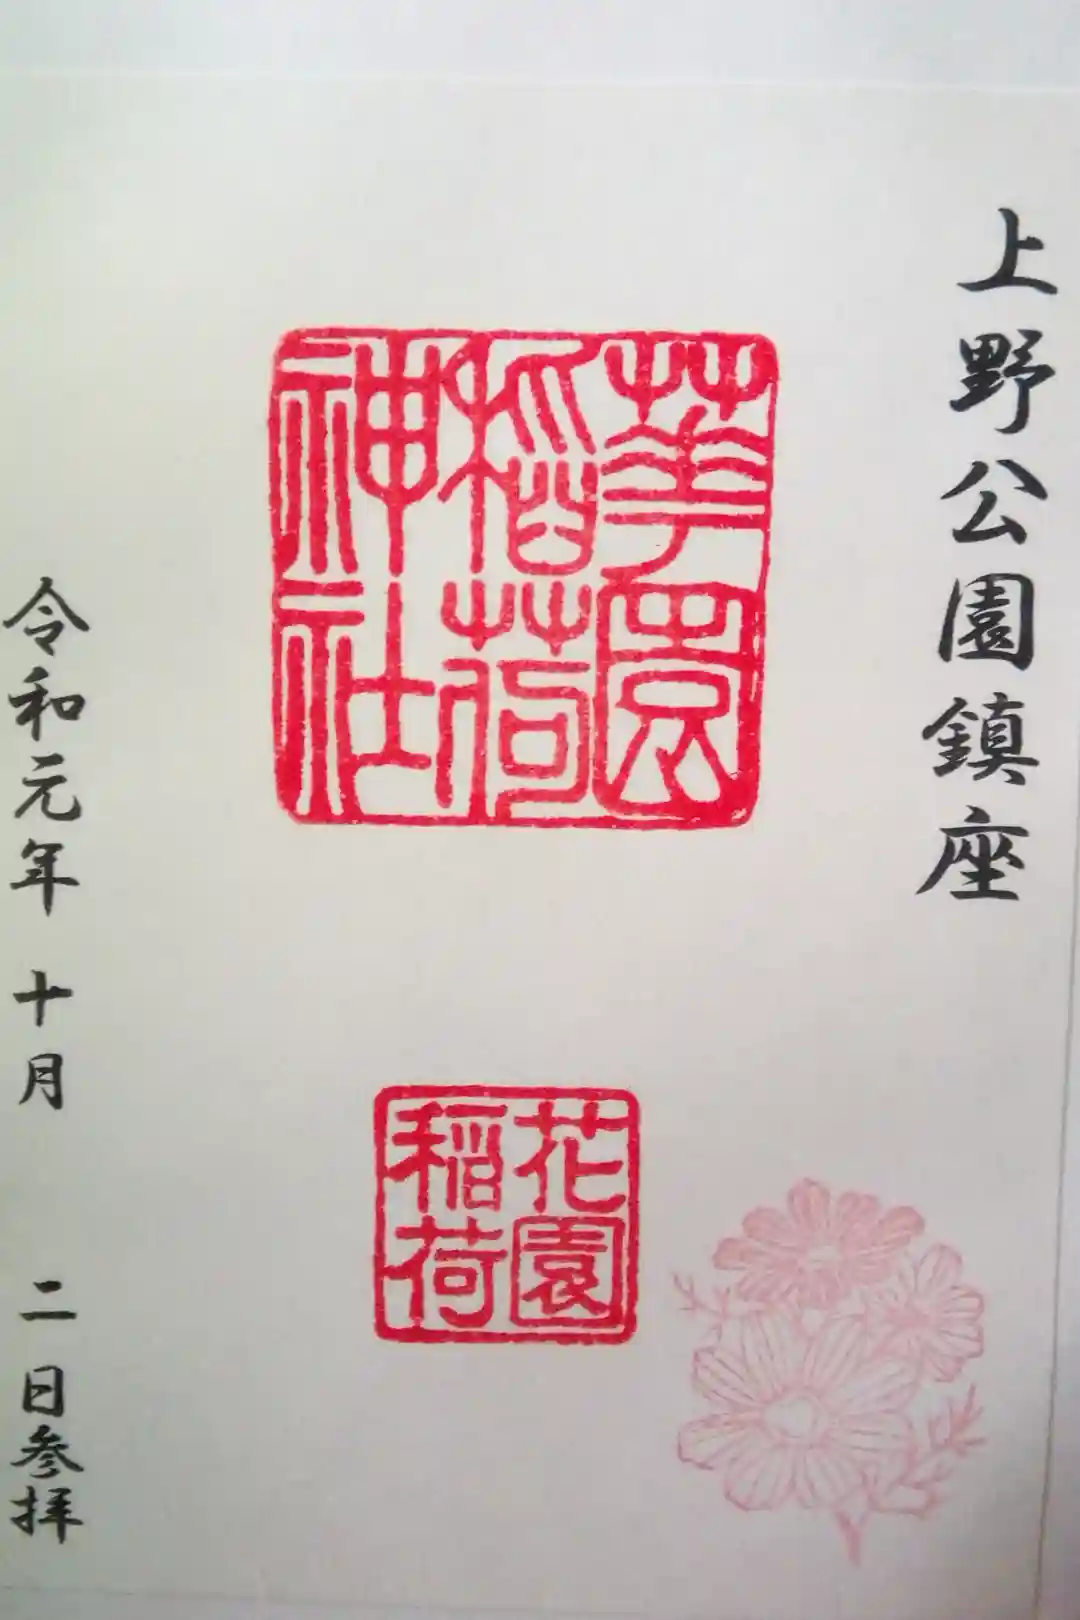 上野公園鎮座
華園
稲荷
神社
花園
稲荷
令和元年 十月 二日参拝